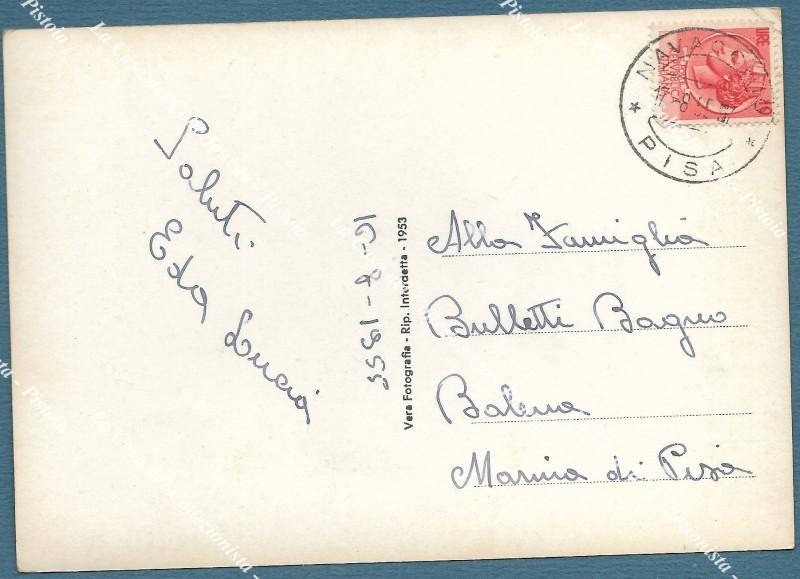 Saluti
Eda Lucia
16-8-1955
Vera Fotografia - Rip. Interdetta - 1953
LIRE
10
PISA
Alla Famiglia
Bulletti Bagno
Balena
Marina di Pisa
La Casa del Collezionista - Pistoia